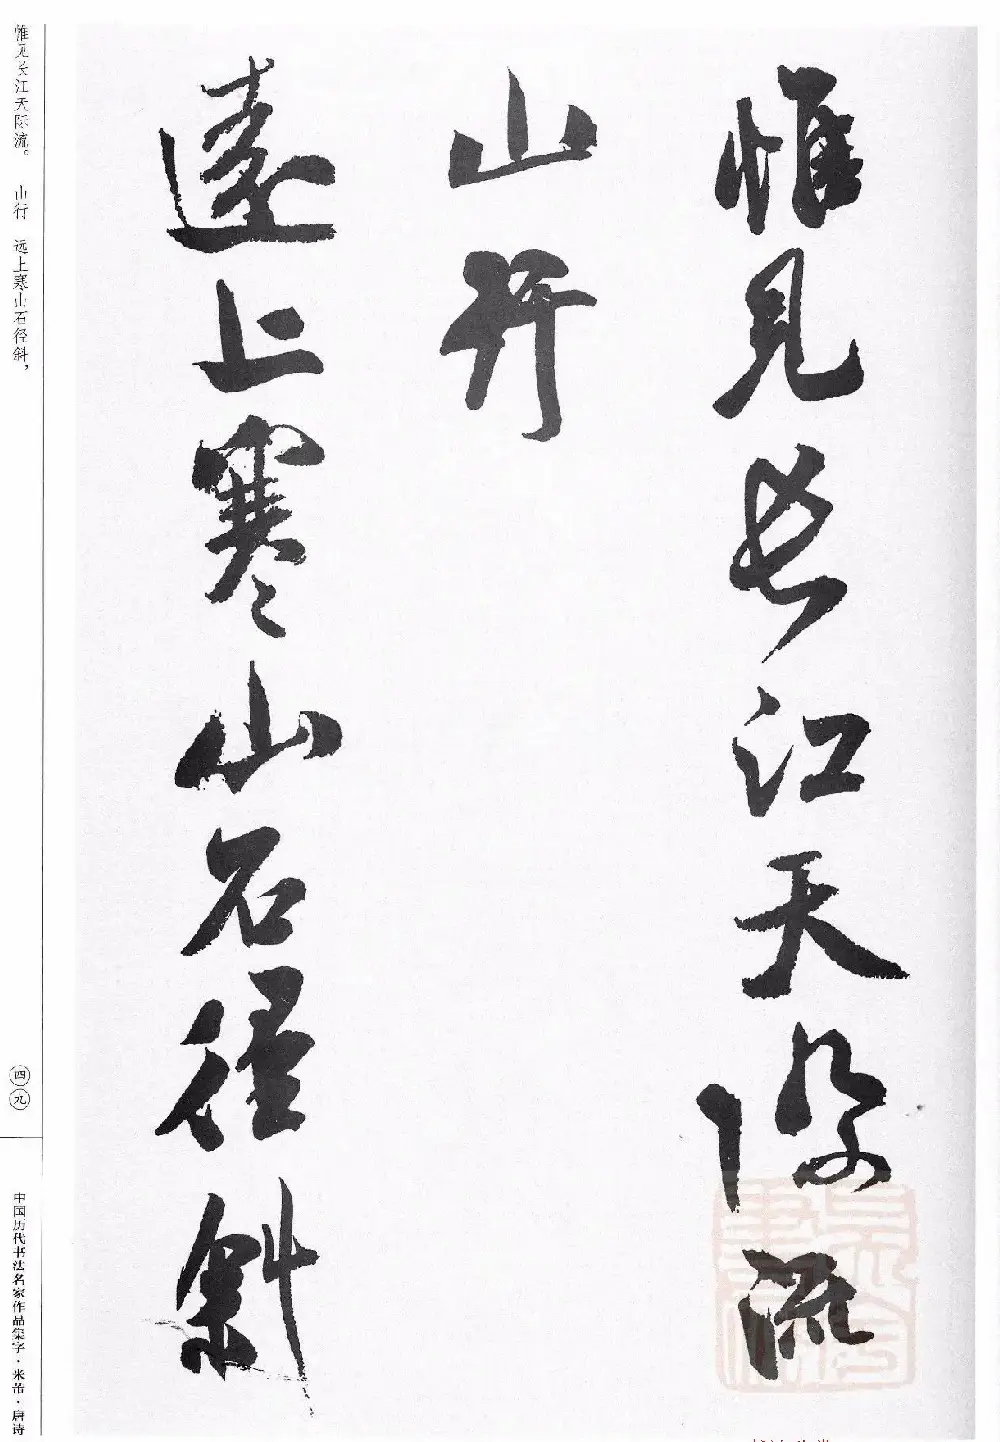 惟見長江天際流
山行
遠上寒山石徑斜
惟见长江天际流。 山行 远上寒山石径斜，
四九
中国历代书法名家作品集字·米芾·唐诗